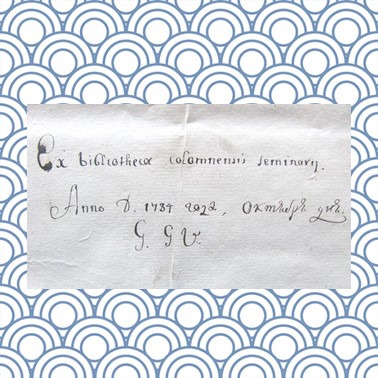 Ex bibliothecæ colomnensis seminarij.
Anno D. 1784 года, Октября дня.
G. G V.